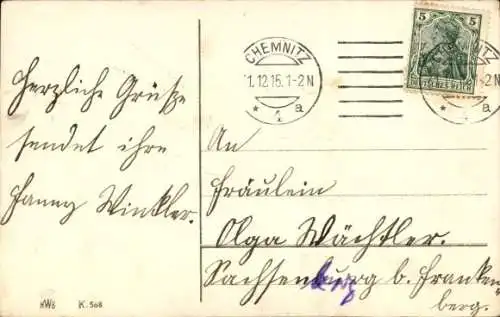 Herzliche Grüsse
sendet ihre
Fanny Winkler.
CHEMNITZ
1.12.15.1-2N
* 1 a
5 5
An
Fräulein
Olga Wächtler.
Sachsenburg b. Franken
berg.
HWB K. 568